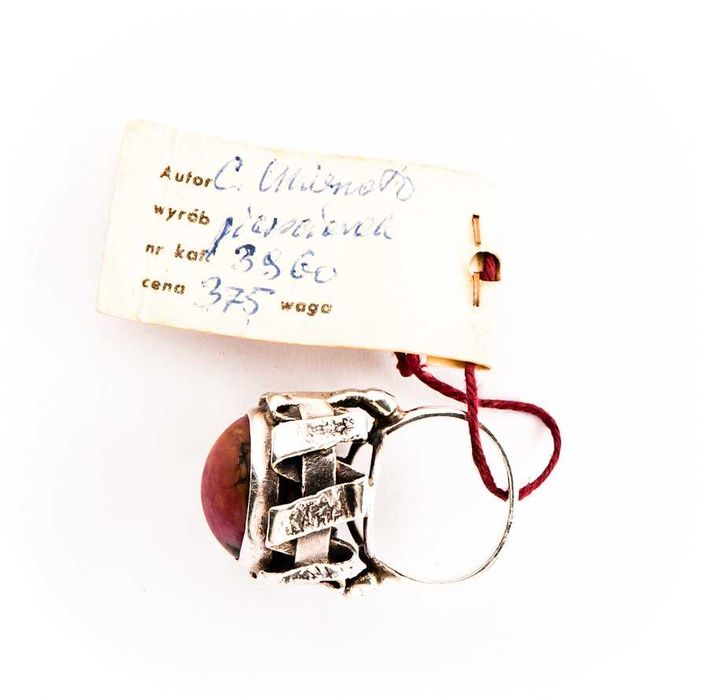 Autor C.
wyrób pierscionek
nr kat. 3960
cena 375 waga